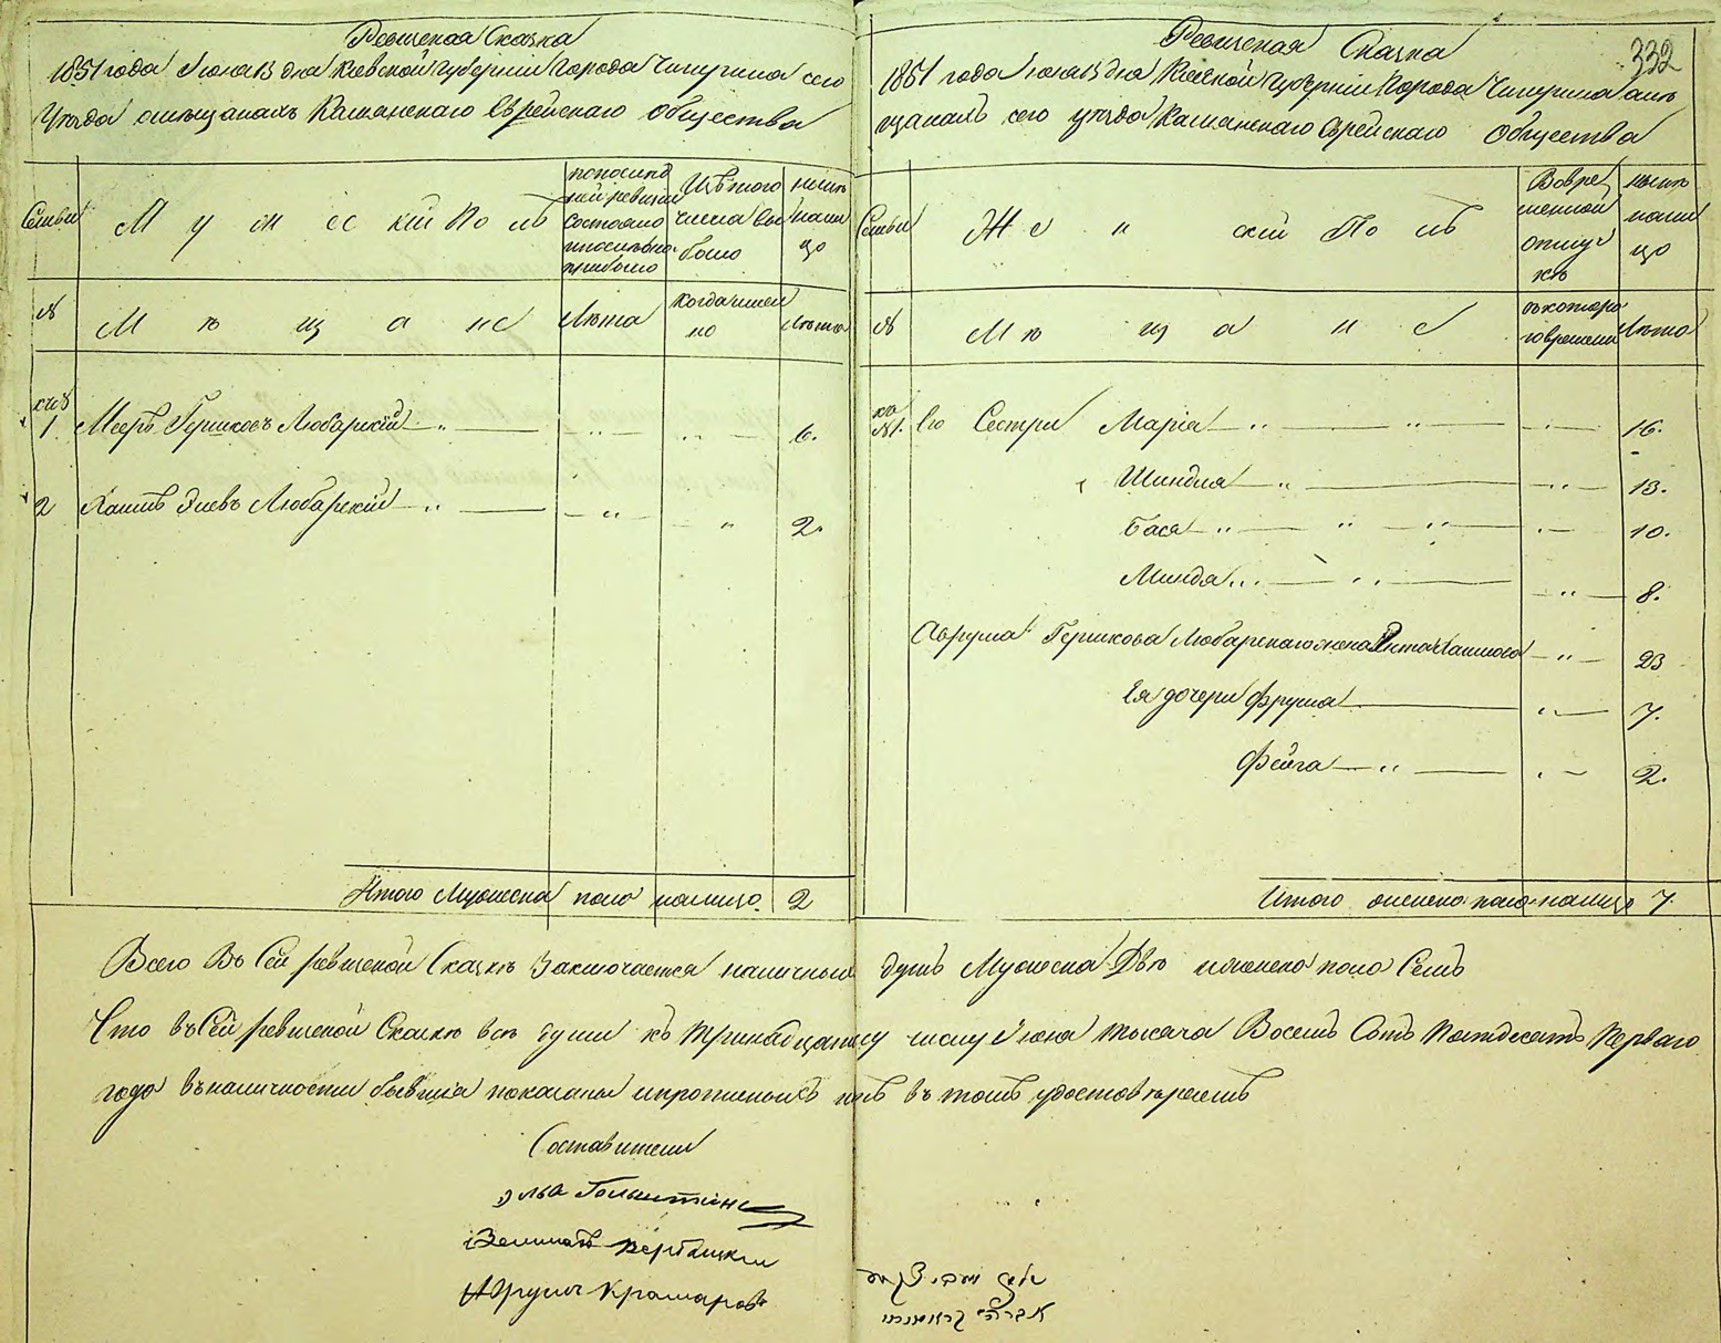 Ревизская Сказка
1851 года Июня 13 дня Киевской Губернии Города Чигирина сего
Уезда о мещанахъ Каменскаго Еврейскаго Общества
Семьи
Мужескій Полъ
по последней ревизии состояло и после того прибыло
Изъ того числа выбыло
ныне налицо
№
Мѣщане
Лѣта
когда именно
Лѣта
къ №
1 Мееръ Гершковъ Любарскій 6.
2 Хаимъ Элевъ Любарскій 2.
Итого Мужеска пола налицо. 2
Ревизская Сказка
332
1851 года Июня 13 дня Киевской Губерніи Города Чигирина о мѣ
щанахъ сего уезда Каменскаго Еврейскаго Общества
Семьи
Женскій Полъ
Во временной отлучкѣ
ныне налицо
№
Мѣщане
съ котораго времени
Лѣта
къ №1. Его Сестры Марія 16.
Шиндля 13.
Бася 10.
Минда 8.
Аврума Гершкова Любарскаго жена Хаимова 23
Ея дочери Фрума 7.
Фейга 2.
Итого женска пола налицо 7.
Всего Въ Сей ревизской Сказкѣ Заключается наличныхъ душъ Мужеска Двѣ и женска пола Семь
Что въ Сей ревизской Сказкѣ всѣ души къ тринадцатому числу Июня тысяча Восемь Сотъ Пятдесятъ Перваго
года въ наличности бывшіа показаны и прописныхъ нѣтъ въ томъ удостовѣряемъ
Составители
Эльа Гольштейнъ
Зельманъ Вербицкій
Аврумъ Крамаровъ